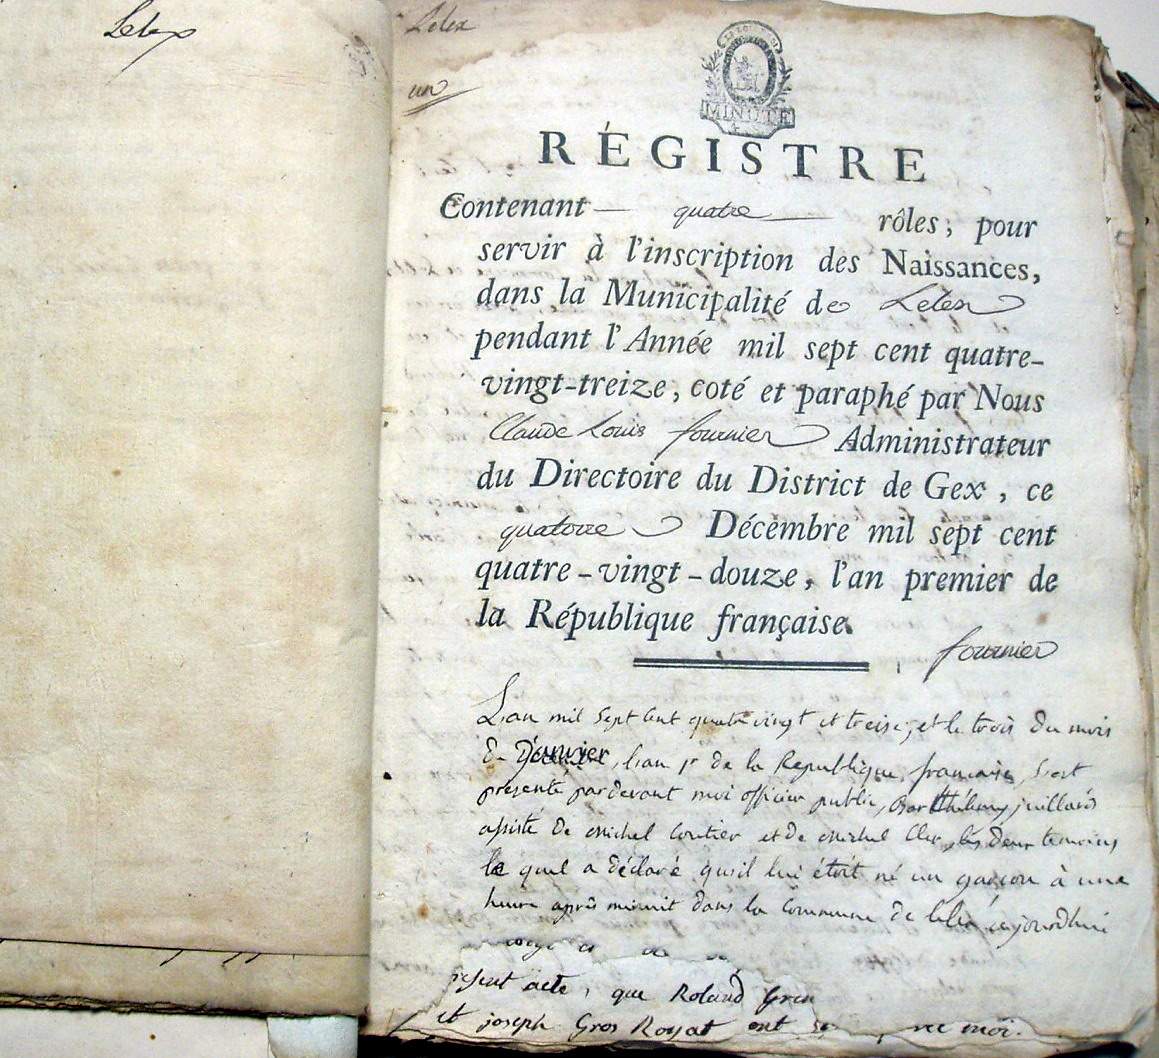 Lelex
Lelex
un
MINUTE
RÉGISTRE
Contenant quatre rôles; pour
servir à l'inscription des Naissances,
dans la Municipalité de Lelex
pendant l'Année mil sept cent quatre-
vingt-treize, coté et paraphé par Nous
Claude Louis fournier Administrateur
du Directoire du District de Gex, ce
quatorze Décembre mil sept cent
quatre-vingt-douze, l'an premier de
la République française.
fournier
L'an mil sept cent quatre vingt et treise, et le trois du mois
de Janvier, l'an 1r de la Republique francaise, s'est
présenté pardevant moi officier public, Barthélemy juillard
assisté de michel et de michel les deux temoins
le quel a déclaré qu'il lui étoit né un garcon à une
heure après minuit dans la commune de lelex aujourdhui
present acte, que Roland Gros
et joseph Gros Royat ont moi.